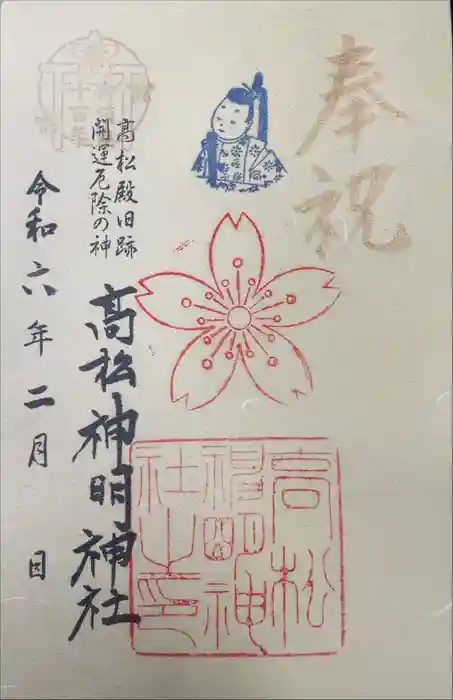 奉祝
高松殿旧跡
開運厄除の神
高松神明神社
令和六年二月 日
高松
神明神
社之印